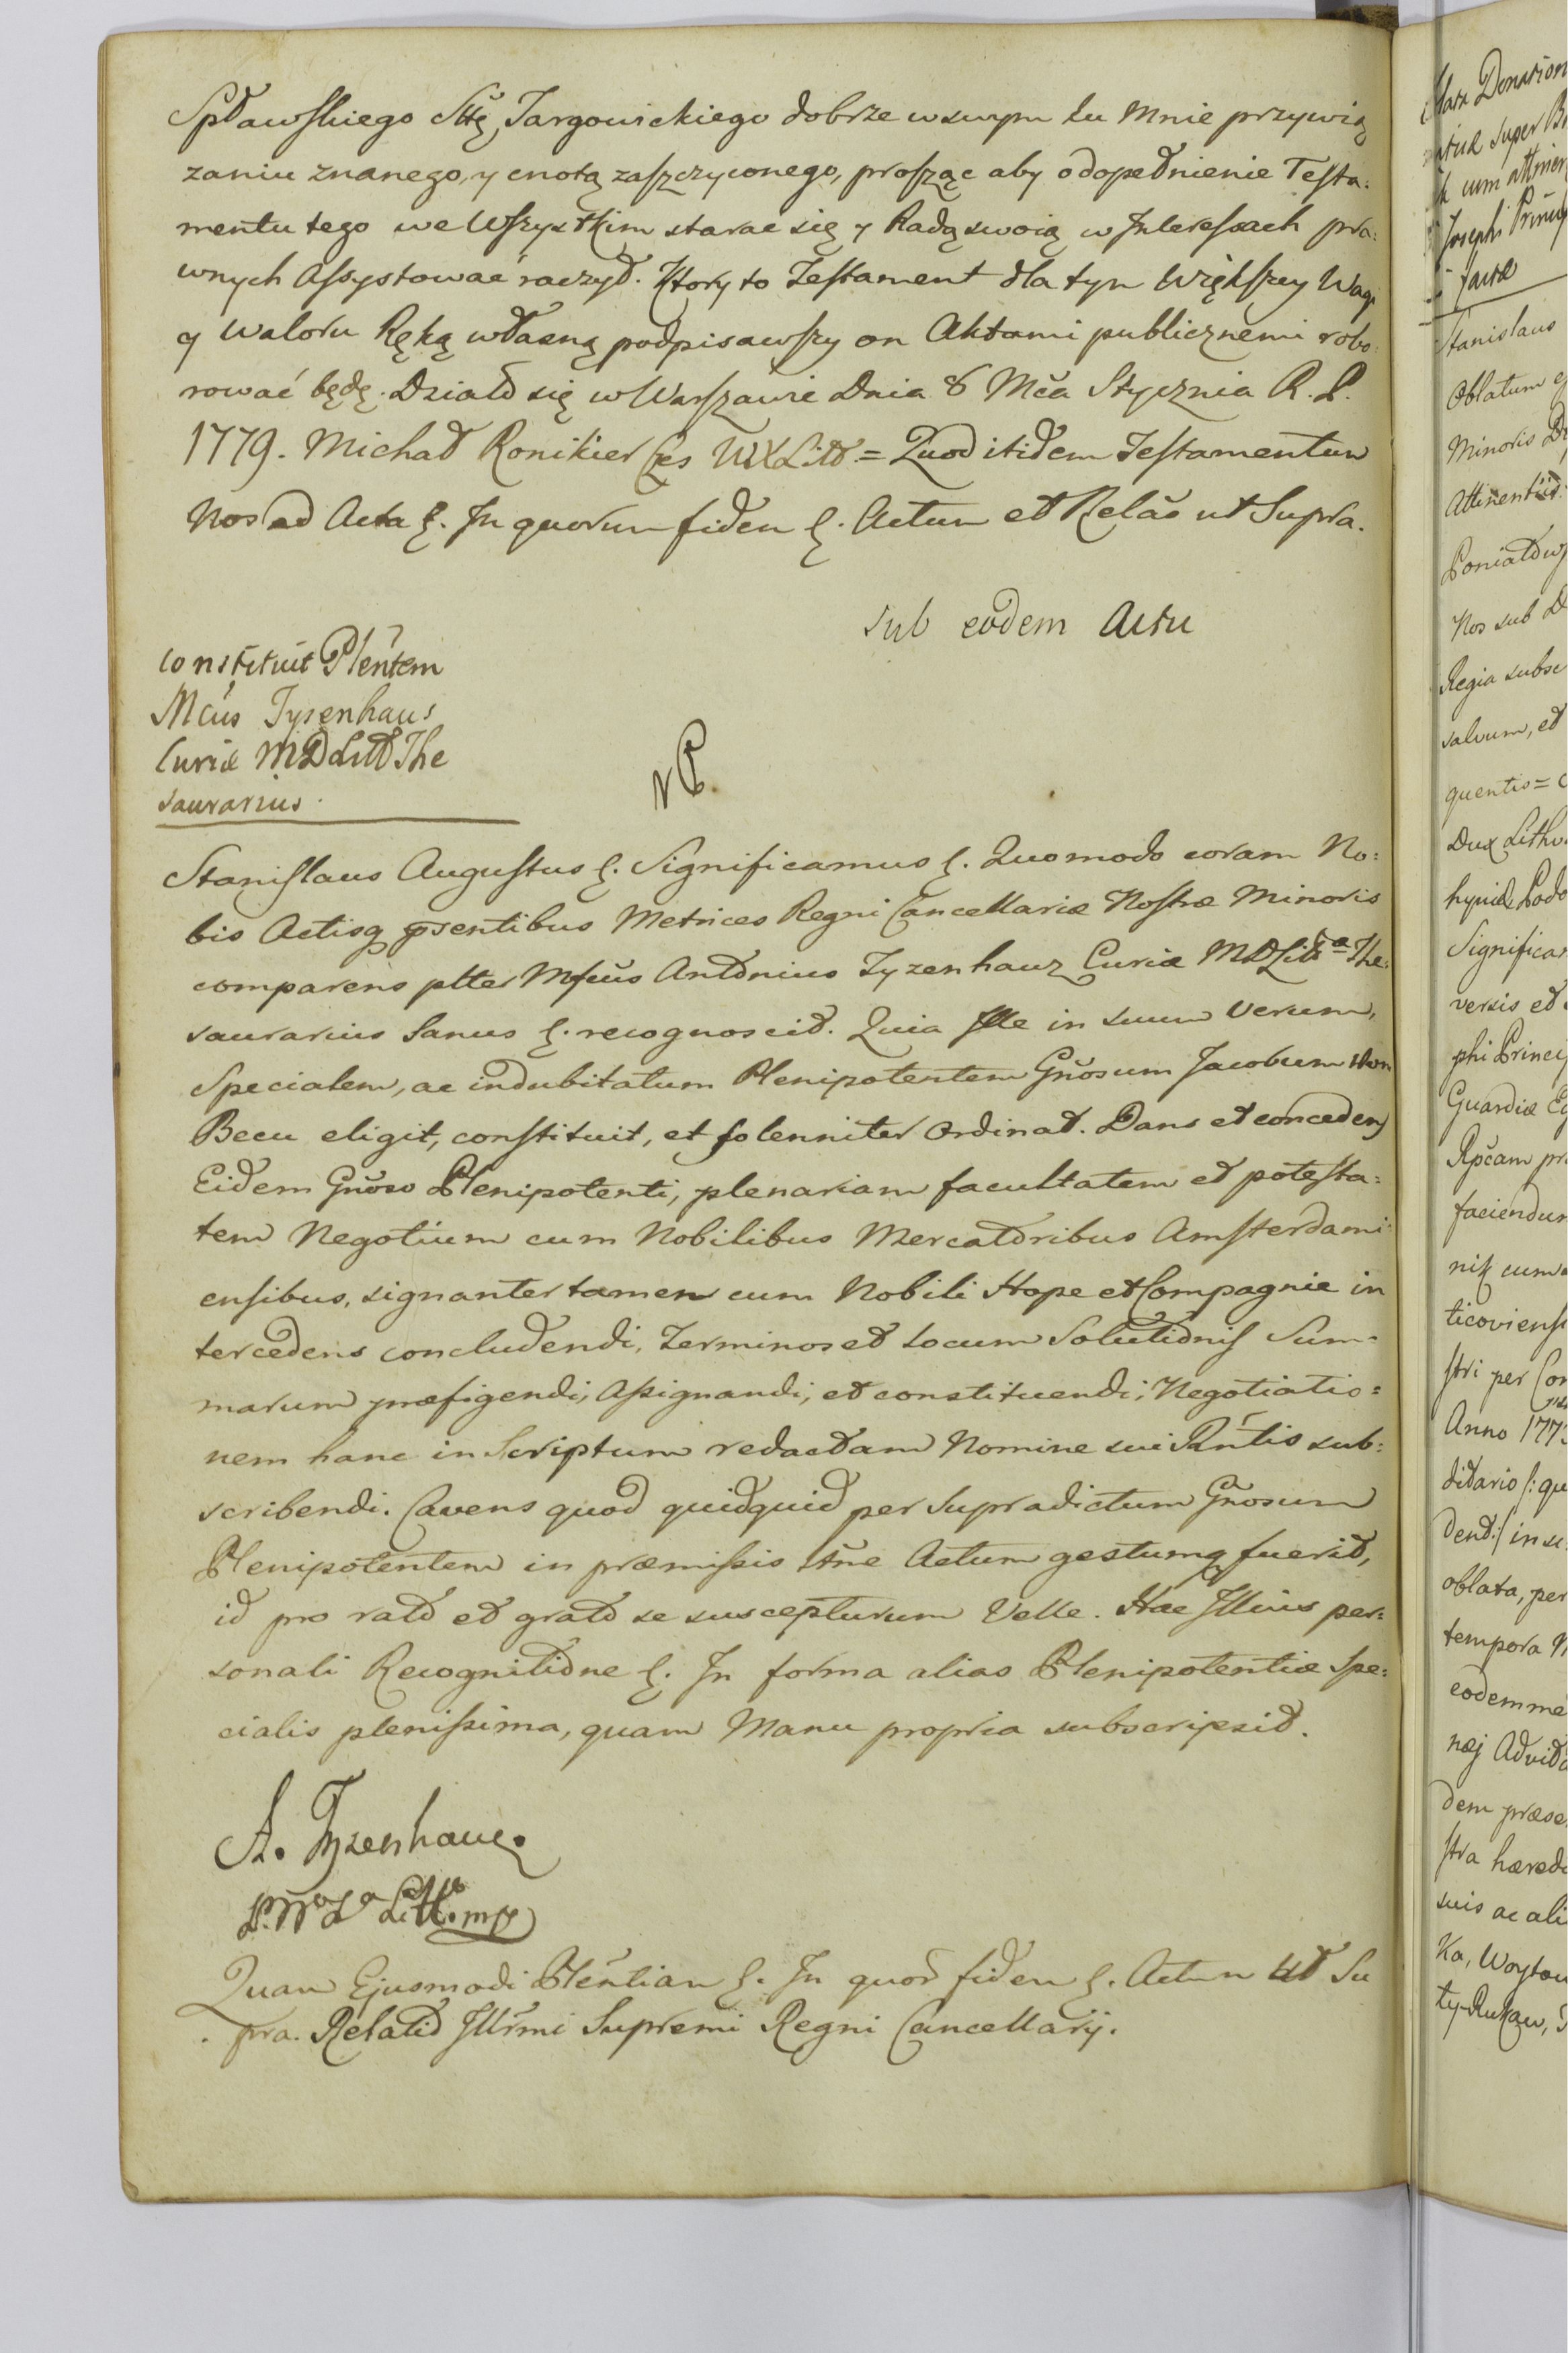 Spławskiego Sttę Targowickiego dobrze w swym ku Mnie przywią
zaniu znanego, y cnotą zaszczyconego, prosząc aby o dopełnienie Testa:
mentu tego we Wszystkim starac się y Radą swoią w Interessach pra:
wnych Assystować raczył. Ktory to Testament dla tym Większey Wagi
y Waloru Ręką własną podpisawszy on Aktami publicznemi robo:
rować będę. Działo się w Warszawie Dnia 8 Mča Stycznia R. P.
1779. Michał Ronikier Czes WXLitt. = Quod itidem Testamentum
Nos ad Acta &. In quorum fidem &. Actum et Relaõ ut Supra.
sub eodem Actu
constituit Pleńtem
Mcus Tysenhaus
Curiæ MDLitt The
saurarius.
Stanislaus Augustus &. Significamus &. Quomodo coram No:
bis Actisq psentibus Metrices Regni Cancellariæ Nostræ Minoris
comparens pltter Mfcus Antonius Tyzenhauz Curiæ MDLittæ The:
saurarius Sanus &. recognoscit. Quia Ille in suum Verum,
Specialem, ac indubitatum Plenipotentem Gnosum Jacobum
Becu eligit, constituit, et solenniter Ordinat. Dans et concedens
Eidem Gnoso Plenipotenti, plenariam facultatem et potesta:
tem Negotium cum Nobilibus Mercatoribus Amsterdami:
ensibus, signanter tamen cum Nobili Hope et Compagnie in
tercedens concludendi, Terminos et Locum Solutionis Sum:
marum præfigendi, Assignandi, et constituendi; Negotiatio:
nem hanc in Scriptum redactam Nomine sui Rńtis sub:
scribendi. Cavens quod quidquid per Supradictum Gnosum
Plenipotentem in præmissis Actum gestumq fuerit,
id pro rato et grato se suscepturum Velle. Hac Illius per:
sonali Recognitione &. In forma alias Plenipotentiæ Spe:
cialis plenissima, quam Manu propria subscripsit.
A. Tyzenhauz.
Quam Ejusmodi Pleńtiam &. In quor fidem &. Actum Ut Su
pra. Relatio Illrmi Supremi Regni Cancellarij.
Donation
super
cum
Josephi
Stanislaus
Oblatum
Minoris
Attinentiis
Nos sub
Regia subsc
salvum, et
quentis =
Dux Lithu
hyniæ, Podo
Significa
versis et
phi Princi
Guardiæ Eq
Rpčam pr
faciendu
ticoviens
stri per Con
Anno 177
ditario /: qu
oblata, per
tempora N
eodem me
dem præse
stra hæredi
suis ac ali